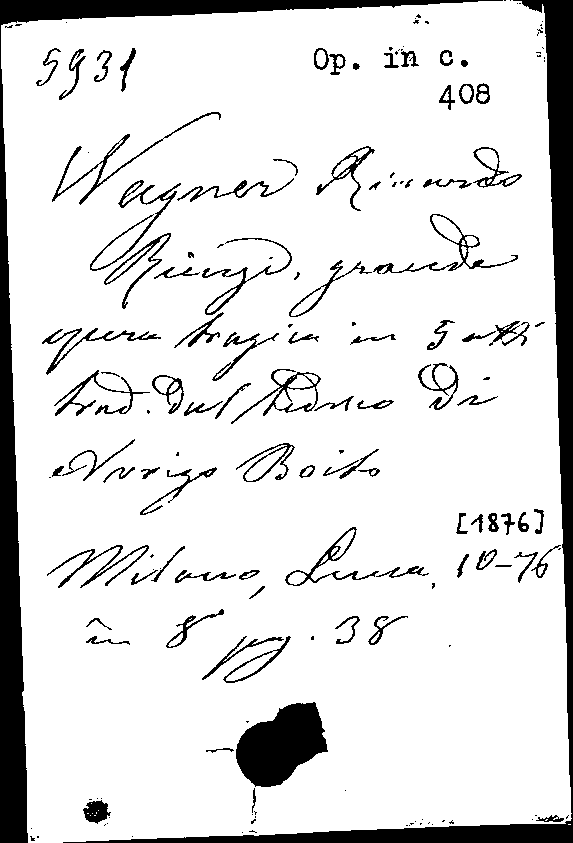 5931
Op. in c.
408
Wagner Riccardo
Rienzi, grande
opera tragica in 5 atti
trad. dal tedesco di
Arrigo Boito
[1876]
Milano, Lucca, 10-76
in 8° pag. 38